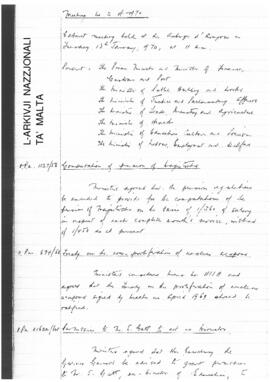 Meeting No 2 of 1970
Cabinet meeting held at the Auberge d'Aragon on
Tuesday 13th January, 1970, at 11 a.m.
L-ARKIVJI NAZZJONALI
TA' MALTA
Present: The Prime Minister and Minister of Finance,
Customs and Port
The Minister of Public Building and Works
The Minister of Justice and Parliamentary Affairs
The Minister of Trade, Industry and Agriculture
The Minister of Health
The Minister of Education Culture and Tourism
The Minister of Labour, Employment and Welfare
Computation of pension of Magistrates
Ministers agreed that the pension regulations
be amended to provide for the computation of the
pension of Magistrates on the basis of 1/360 of salary
in respect of each complete month's service, instead
of as at present
Treaty on the non-proliferation of nuclear weapons
Ministers considered memo No
agreed that the Treaty on the proliferation of nuclear
weapons signed by Malta in April 1969 should be
ratified.
Permission to Mr S. Gatt to act as
Ministers agreed that His Excellency the
Governor General be advised to grant permission
to Mr S. Gatt, of Education, to